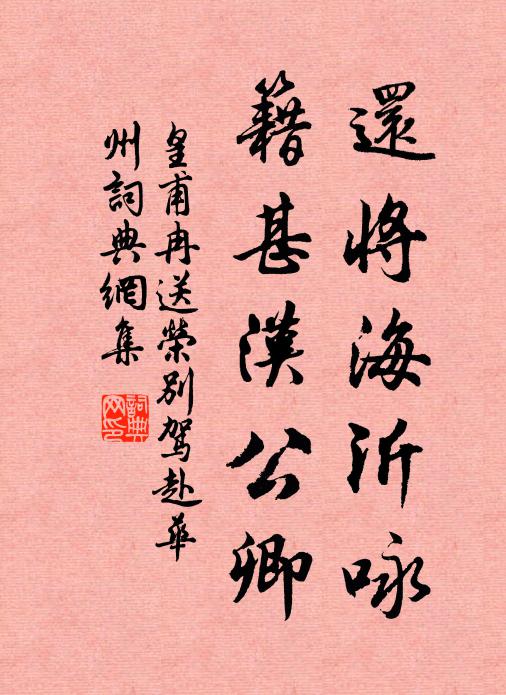 還將海沂咏
籍甚漢公卿
皇甫冉送榮別駕赴華
州詞典網集
詞典網印